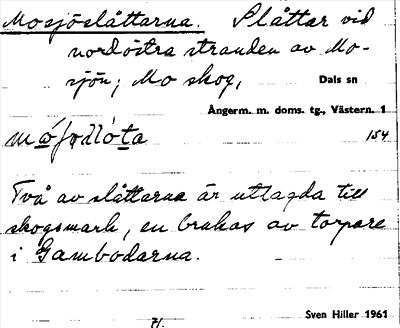 Mosjöslåttarna. Slåttar vid
nordöstra stranden av Mo-
sjön; Mo skog,
Dals sn
Ångerm. m. doms. tg., Västern. 1
154
Två av slåttarna är utlagda till
skogsmark, en brukas av torpare
i Gambodarna.
Sven Hiller 1961
H.